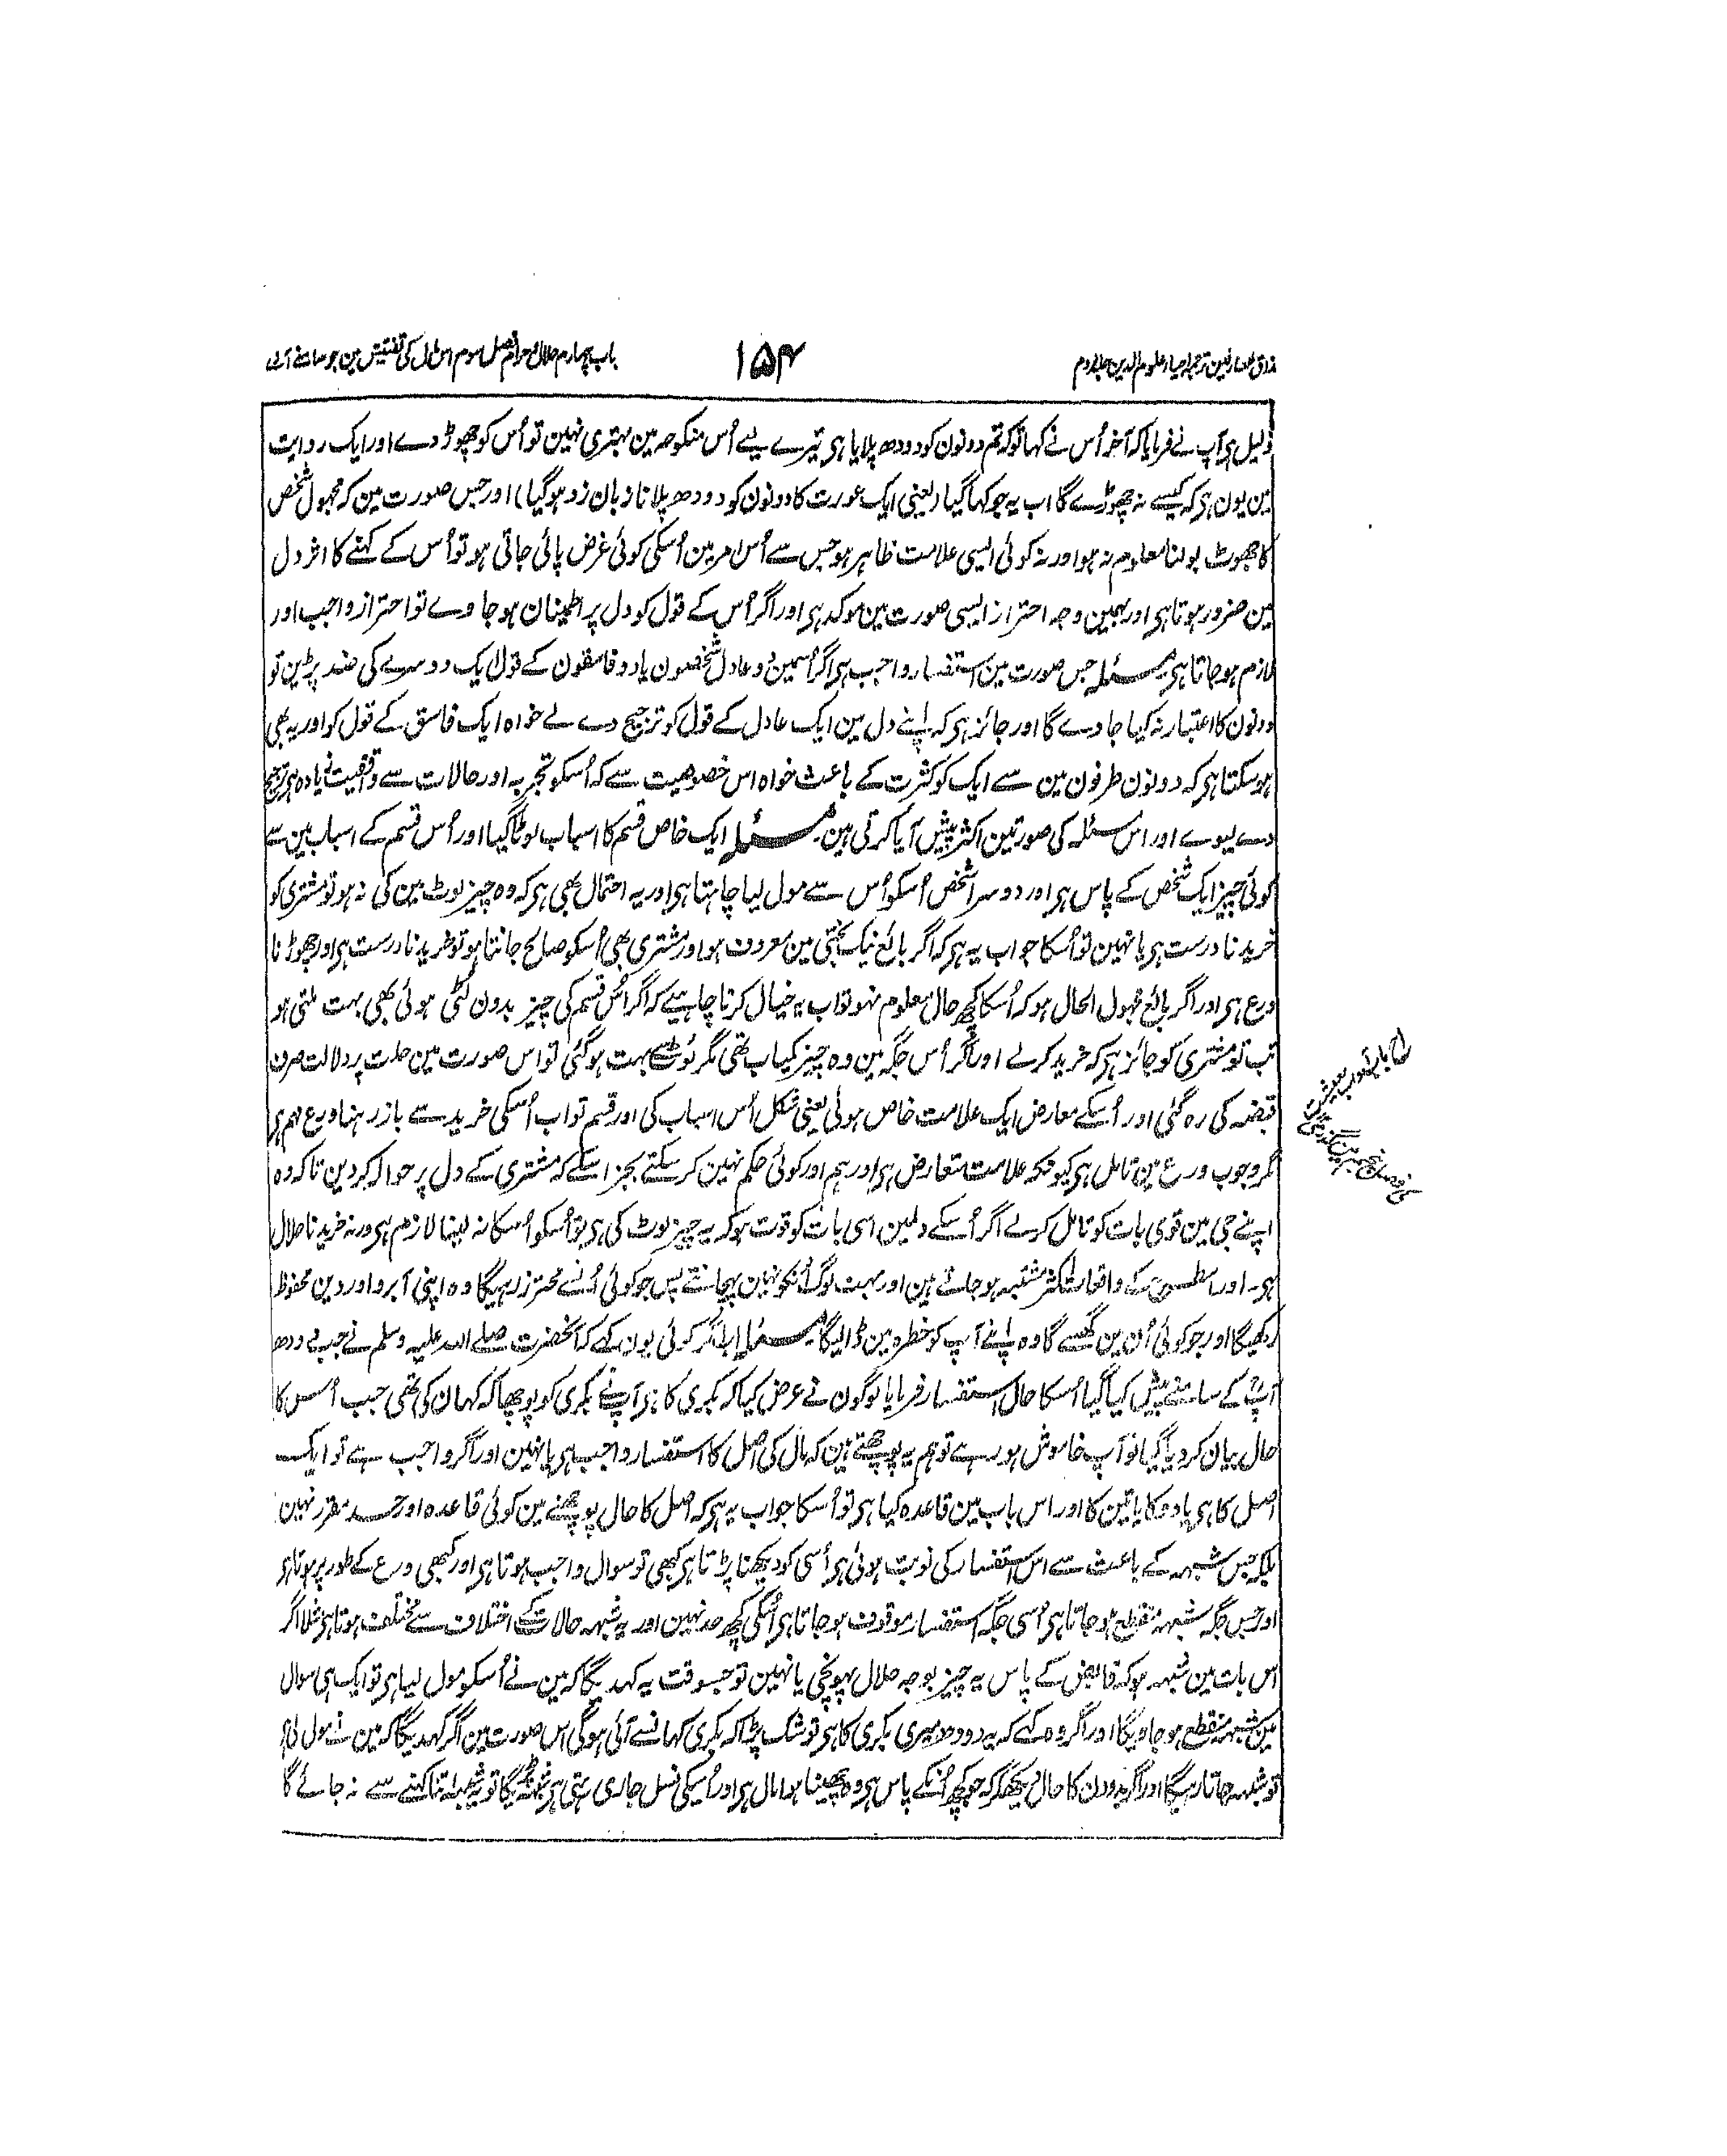 مذاق العارفین ترجمہ احیاء علوم الدین جلد دوم
۱۵۴
باب چہارم حلال و حرام فصل سوم اس مال کی تفتیش مین جو سامنے آئے
ذلیل ہی آپ نے فرمایا کہ آخر اُس نے کہا تو کہ تم دونون کو دودھ پلایا ہی تیرے لیے اُس منکوحہ مین بہتری نہین تو اُس کو چھوڑ دے اور ایک روایت
مین یون ہی کہ کیسے نہ چھوڑے گا اب یہ جو کہا گیا (یعنی ایک عورت کا دونون کو دودھ پلانا زبان زد ہو گیا) اور جس صورت مین کہ مجہول شخص
کا جھوٹ بولنا معلوم نہ ہو اور نہ کوئی ایسی علامت ظاہر ہو جس سے اُس امر مین اُسکی کوئی غرض پائی جاتی ہو تو اُس کے کہنے کا اثر دل
مین ضرور ہوتا ہی اور بہمین وجہ احتراز ایسی صورت مین موکد ہی اور اگر اُس کے قول کو دل پر اطمینان ہو جاوے تو احتراز واجب اور
لازم ہو جاتا ہی مسئلہ جس صورت مین استفسار واجب ہی اگر اُسمین دو عادل شخصون یا دو فاسقون کے قول ایک دوسرے کی ضد پڑین تو
دونون کا اعتبار نہ کیا جاوے گا اور جائز ہی کہ اپنے دل مین ایک عادل کے قول کو ترجیح دے لے خواہ ایک فاسق کے قول کو اور یہ بھی
ہو سکتا ہی کہ دونون طرفون مین سے ایک کو کثرت کے باعث خواہ اس خصوصیت سے کہ اُسکو تجربہ اور حالات سے واقفیت زیادہ ہی ترجیح
دے لیوے اور اس مسئلہ کی صورتین اکثر پیش آیا کرتی ہین۔ مسئلہ ایک خاص قسم کا اسباب لوٹا گیا اور اُس قسم کے اسباب مین سے
کوئی چیز ایک شخص کے پاس ہی اور دوسرا شخص اُسکو اُس سے مول لیا چاہتا ہی اور یہ احتمال بھی ہی کہ وہ چیز لوٹ مین کی نہ ہو تو مشتری کو
خریدنا درست ہی یا نہین تو اُسکا جواب یہ ہی کہ اگر بائع نیک بختی مین معروف ہو اور مشتری بھی اُسکو صالح جانتا ہو تو خریدنا درست ہی اور چھوڑنا
ورع ہی اور اگر بائع مجہول الحال ہو کہ اُسکا کچھ حال معلوم نہو تو اب یہ خیال کرنا چاہیے کہ اگر اُس قسم کی چیز بدون لٹی ہوئی بھی بہت ملتی ہو
تب تو مشتری کو جائز ہی کہ خرید کرلے اور اگر اُس جگہ مین وہ چیز کمیاب تھی مگر لوٹ سے بہت ہو گئی تو اس صورت مین حلت پر دلالت صرف
قبضہ کی رہ گئی اور اُسکے معارض ایک علامت خاص ہوئی یعنی شکل اُس اسباب کی اور قسم تو اب اُسکی خرید سے باز رہنا ورع مہم ہی
مگر وجوب ورع مین تامل ہی کیونکہ علامت متعارض ہی اور ہم اور کوئی حکم نہین کر سکتے بجز اسکے کہ مشتری کے دل پر حوالہ کر دین تاکہ وہ
اپنے جی مین قوی بات کو تامل کرلے اگر اُسکے دلمین اسی بات کو قوت ہو کہ یہ چیز لوٹ کی ہی تو اُسکو اُسکا نہ لینا لازم ہی ورنہ خریدنا حلال
ہی۔ اور اسطرح کے واقعات اکثر مشتبہ ہو جاتے ہین اور بہت لوگ اُنکو نہین پہچانتے پس جو کوئی اُنسے محترز رہیگا وہ اپنی آبرو اور دین محفوظ
رکھیگا اور جو کوئی اُن مین گھسے گا وہ اپنے آپ کو خطرہ مین ڈالیگا مسئلہ اگر کوئی یون کہے کہ آنحضرت صلے اللہ علیہ وسلم نے جب دودھ
آپ کے سامنے پیش کیا گیا اُسکا حال استفسار فرمایا لوگون نے عرض کیا کہ بکری کا ہی آپنے بکری کو پوچھا کہ کہان کی تھی جب اُس کا
حال بیان کر دیا گیا تو آپ خاموش ہو رہے تو ہم یہ پوچھتے ہین کہ مال کی اصل کا استفسار واجب ہی یا نہین اور اگر واجب ہے تو ایک
اصل کا ہی یا دو کا یا تین کا اور اس باب مین قاعدہ کیا ہی تو اُسکا جواب یہ ہی کہ اصل کا حال پوچھنے مین کوئی قاعدہ اور حد مقرر نہین
بلکہ جس شبہہ کے باعث سے اس استفسار کی نوبت ہوئی ہی اُسی کو دیکھنا پڑتا ہی کبھی تو سوال واجب ہوتا ہی اور کبھی ورع کے طور پر ہوتا ہی
اور جس جگہ شبہہ منقطع ہو جاتا ہی اُسی جگہ استفسار موقوف ہو جاتا ہی اُسکی کچھ حد نہین اور یہ شبہہ حالات کے اختلاف سے مختلف ہوتا ہی مثلا اگر
اس بات مین شبہہ ہو کہ قابض کے پاس یہ چیز بوجہ حلال پہونچی یا نہین تو جسوقت یہ کہدیگا کہ مین نے اُسکو مول لیا ہی تو ایک ہی سوال
مین شبہہ منقطع ہو جاویگا اور اگر وہ کہے کہ یہ دودھ میری بکری کا ہی تو شک پڑا کہ بکری کہانسے آئی ہو گی اس صورت مین اگر کہدیگا کہ مین نے مول لی ہی
تو شبہہ جاتا رہیگا اور اگر بدوون کا حال دیکھکر کہ جو کچھ اُنکے پاس ہی وہ چھینا ہوا مال ہی اور اُسیکی نسل جاری رہتی ہی شبہہ پڑیگا تو یہ شبہہ اتنا کہنے سے نہ جائے گا